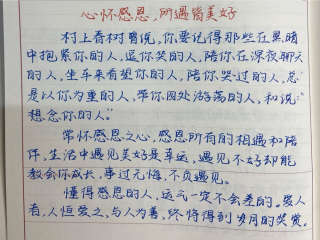 心怀感恩，所遇皆美好
村上春树曾说，你要记得那些在黑暗
中抱紧你的人，逗你笑的人，陪你在深夜聊天
的人，坐车来看望你的人，陪你哭过的人，总
是以你为重的人，带你四处游荡的人，和说“
想念你的人”
常怀感恩之心，感恩所有的相遇和陪
伴，生活中遇见美好是幸运，遇见不好却能
教会你成长，事过无悔，不负遇见。
懂得感恩的人，运气一定不会差的。爱人
者，人恒爱之，与人为善，终将得到岁月的奖赏。